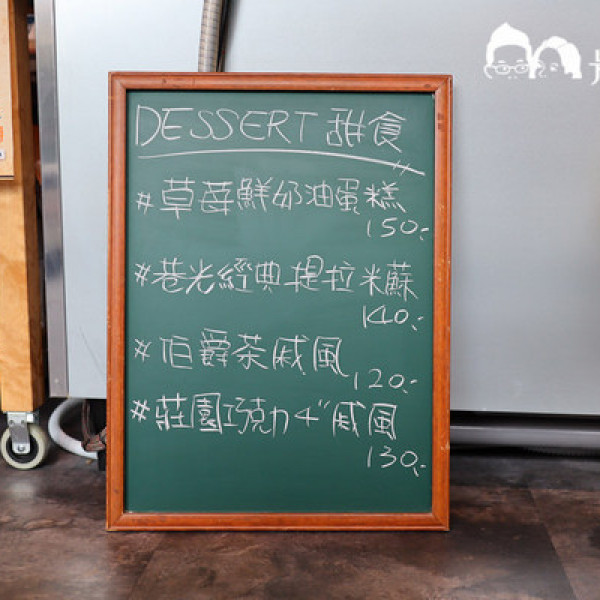 DESSERT 甜食
#草莓鮮奶油蛋糕
150.-
#巷光經典提拉米蘇
140.-
#伯爵茶戚風
120.-
#莊園巧克力4"戚風
130.-